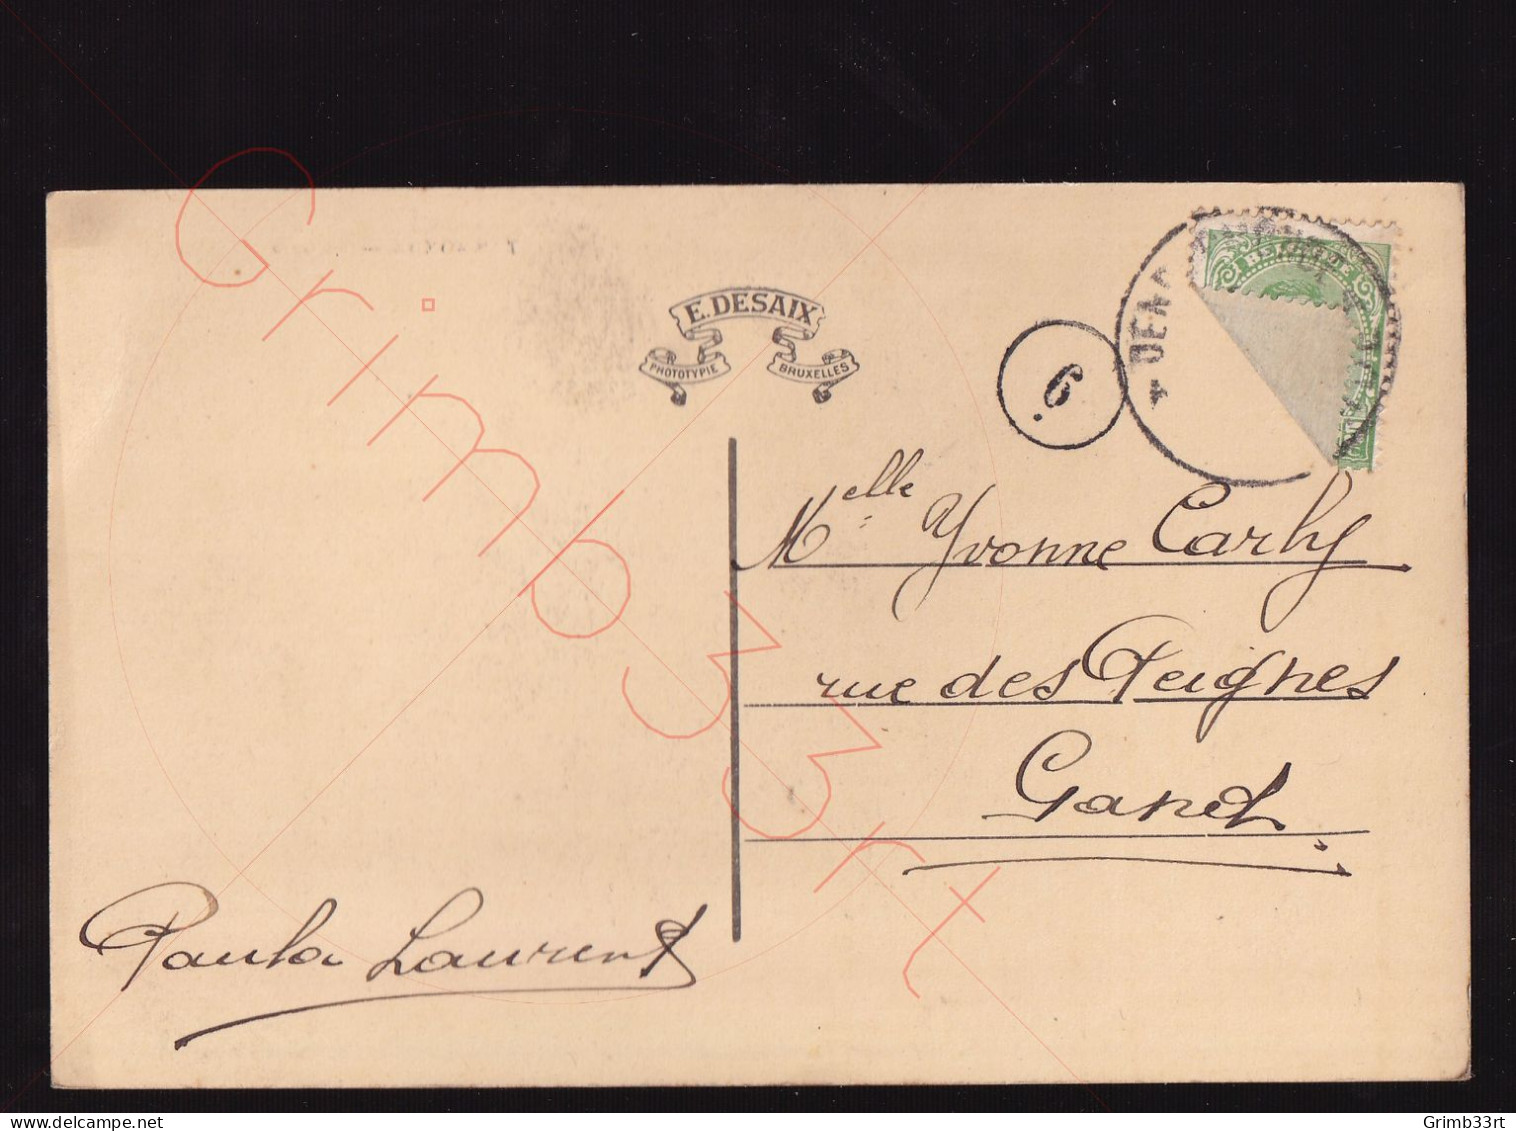 E. DESAIX
PHOTOTYPIE BRUXELLES
BELGIQUE
6
Melle Yvonne Carly
rue des Peignes
Gand
Paula Laurent
Grimb33rt
Grimb33rt